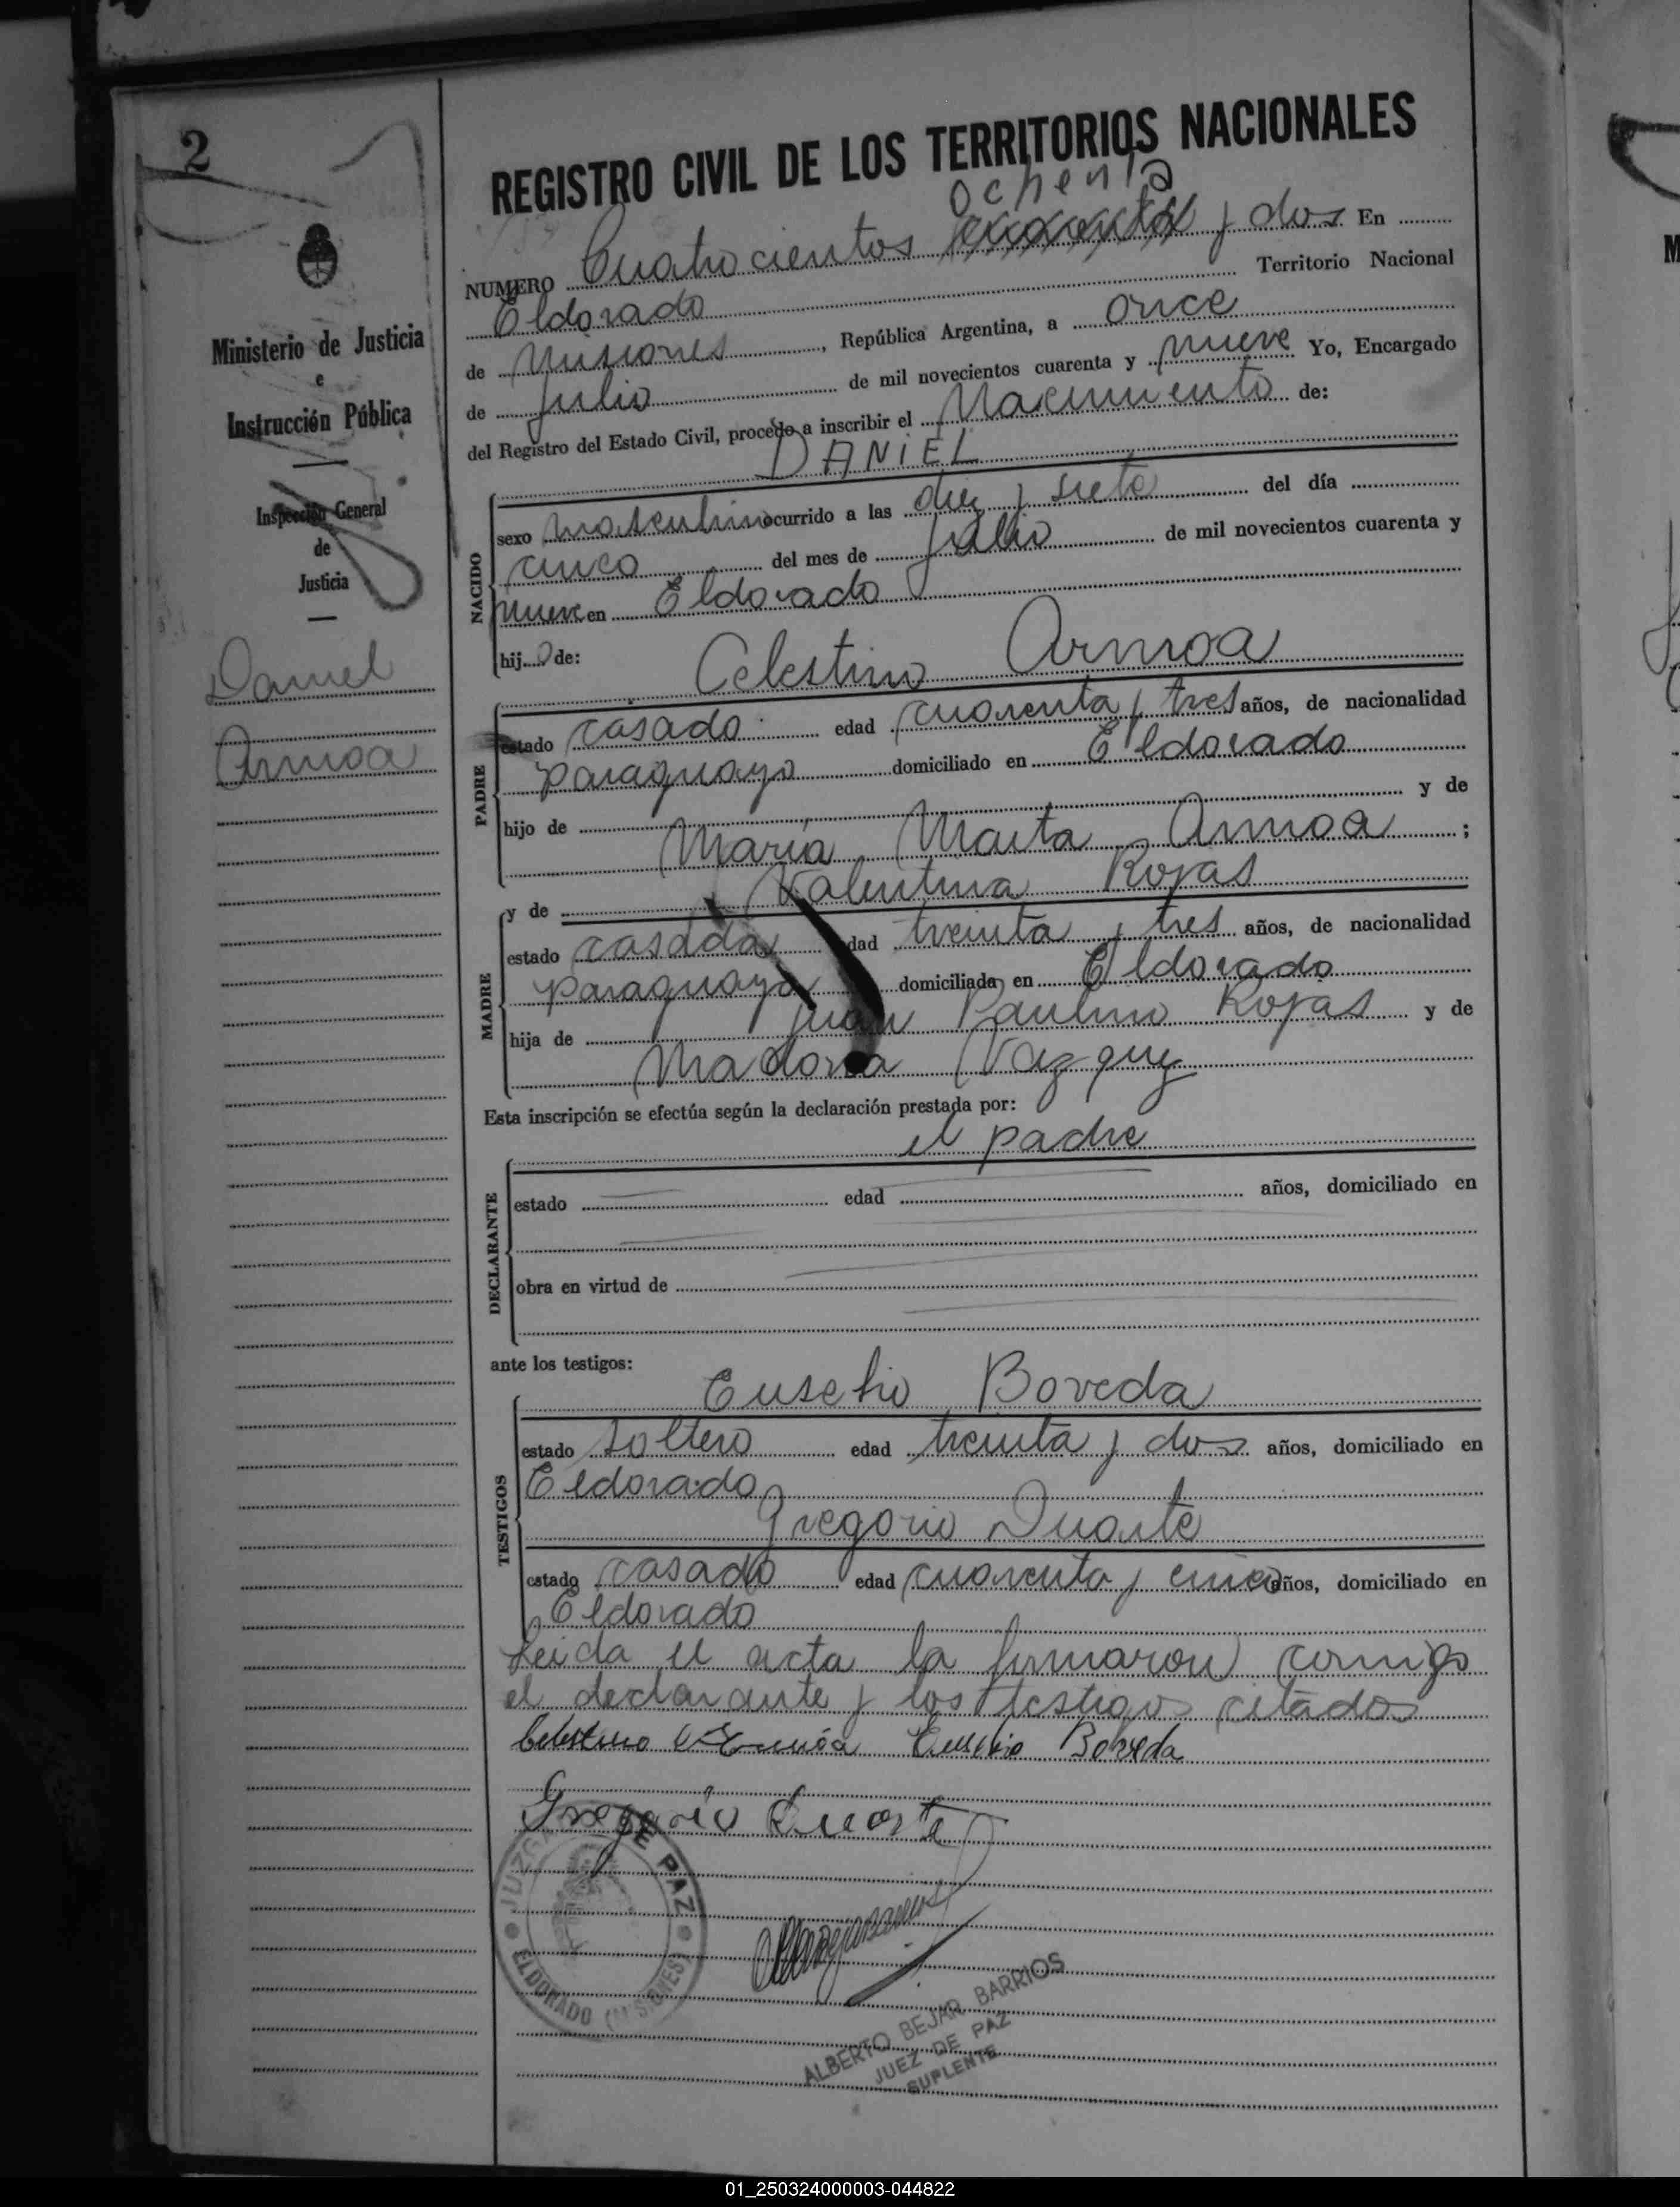 2
Ministerio de Justicia
e
Instrucción Pública
Inspección General
de
Justicia
Daniel
Armoa
REGISTRO CIVIL DE LOS TERRITORIOS NACIONALES
ochenta
NUMERO Cuatrocientos y dos En
Eldorado Territorio Nacional
de Misiones, República Argentina, a once
de julio de mil novecientos cuarenta y nueve Yo, Encargado
del Registro del Estado Civil, procedo a inscribir el Nacimiento de:
DANIEL
NACIDO
sexo masculino ocurrido a las diez y siete del día
cinco del mes de julio de mil novecientos cuarenta y
nueve en Eldorado
hijo de:
Celestino Armoa
PADRE
estado casado edad cuarenta y tres años, de nacionalidad
paraguayo domiciliado en Eldorado
hijo de y de
María Marta Armoa ;
y de Valentina Rojas
MADRE
estado casada edad treinta y tres años, de nacionalidad
paraguaya domiciliada en Eldorado
hija de Juan Paulino Rojas y de
Vazquez
Esta inscripción se efectúa según la declaración prestada por:
el padre
DECLARANTE
estado edad años, domiciliado en
obra en virtud de
ante los testigos:
Eusebio Boveda
TESTIGOS
estado soltero edad treinta y dos años, domiciliado en
Eldorado
Gregorio Duarte
estado casado edad cuarenta y cinco años, domiciliado en
Eldorado
Leida el acta la firmaron conmigo
el declarante y los testigos citados
Celestino Armóa Eusebio Boveda
Gregorio Duarte
JUZGADO DE PAZ
ELDORADO (MISIONES)
ALBERTO BEJAR BARRIOS
JUEZ DE PAZ
SUPLENTE
01_250324000003-044822